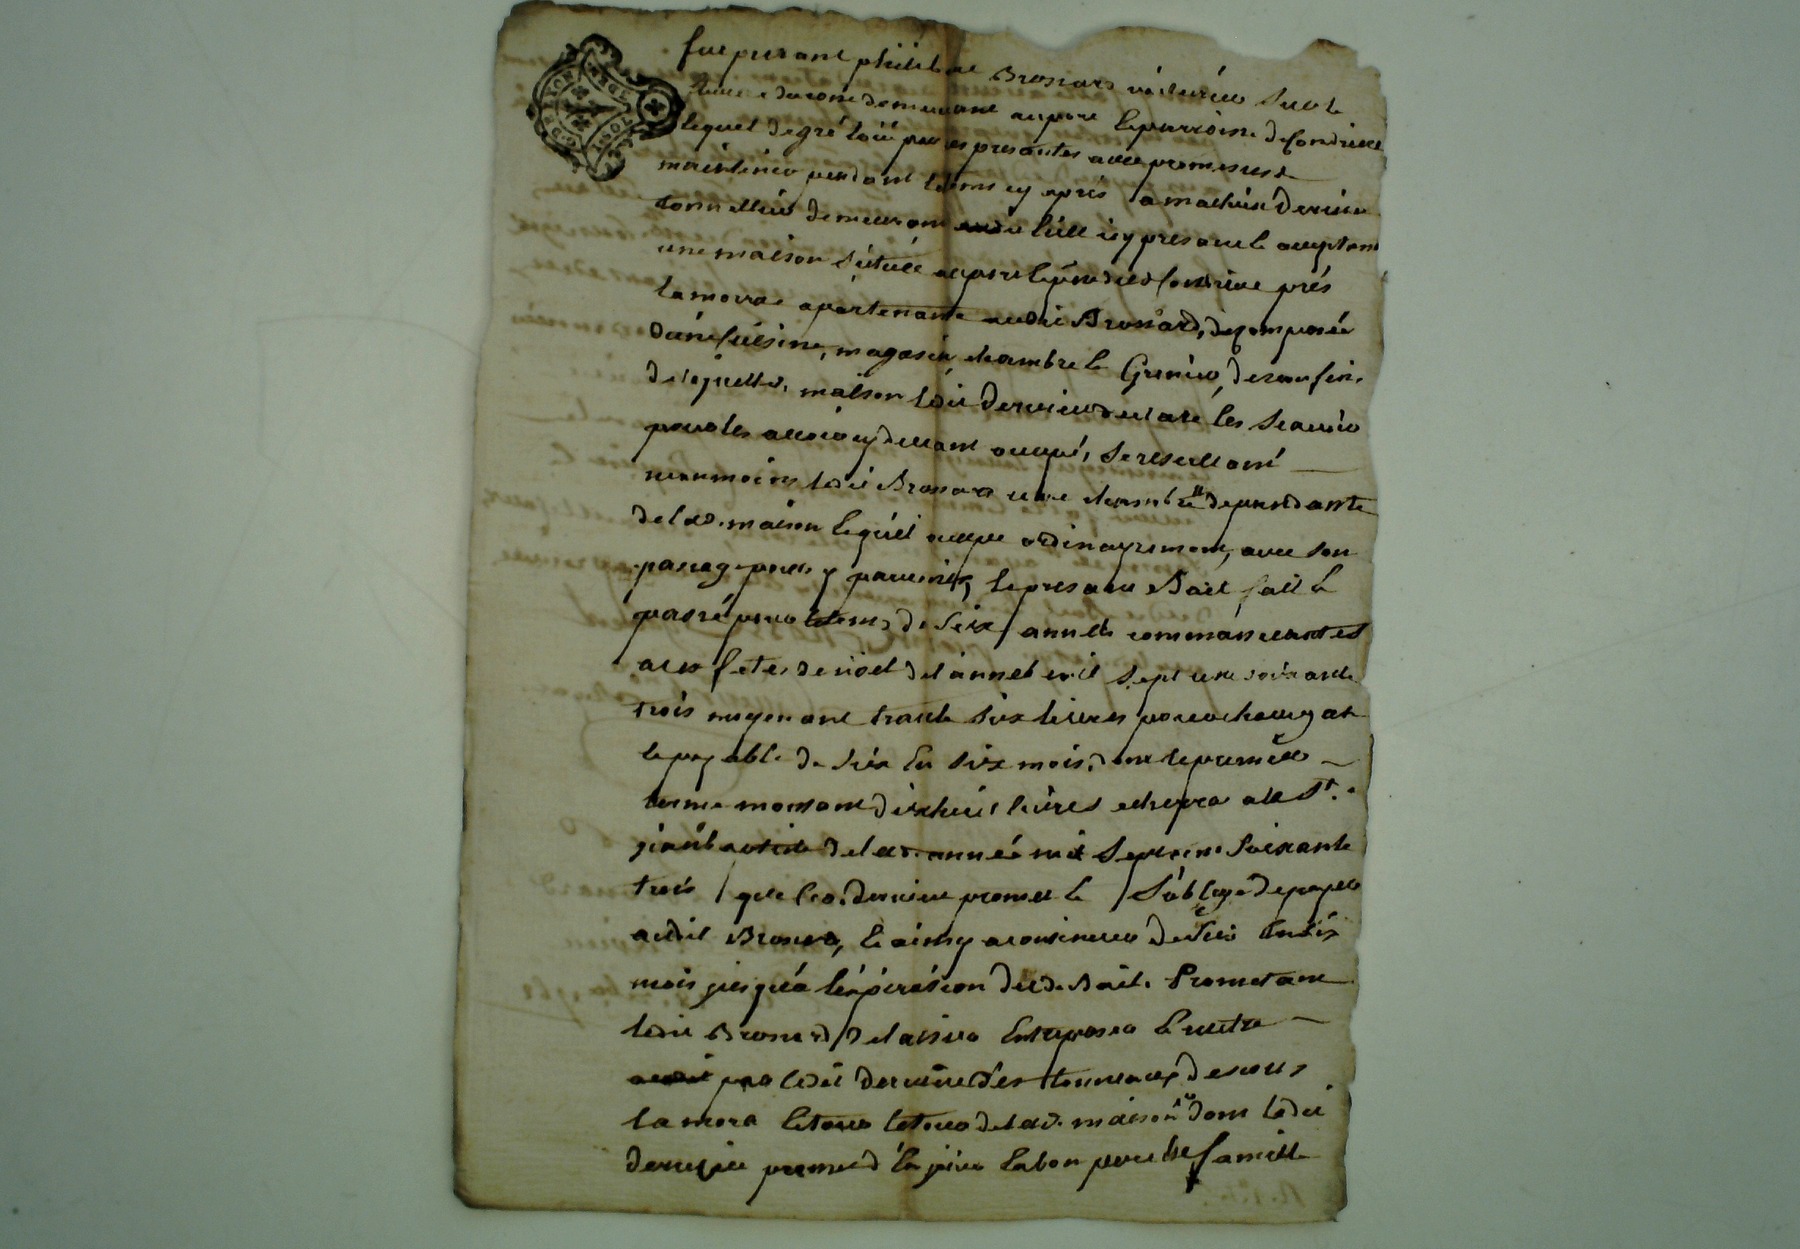 fut presant philibert Brossard voiturier sur le
fleuve du rosne demeurant au port & parroisse de Condrieu
lequel de gré loüe par ces presantes avec promesse de
maintenir pendant le tems cy apres a mathieu Dervieu
tonnellier demeurant audit lieu icy presant & acceptant
une maison située au port & paroisse de Condrieu prés
la morra apartenante audit Brossard, de composée
d'une cuisine, magasin, chambre & Grenier, desconfins
de laquelle maison ledit Dervieu declare les scavoir
pour les avoir cy devant occupé, se reservant
neanmoins ledit Brossard une chambre dependante
de lad. maison lequel occupe ordinayrement, avec son
passage pour y parvenir, le presant Bail fait &
passé pour le tems de six années commansantes
aux fetes de nöel de l'année mil sept cent soixante
trois moyenant trante six livres pour chaqu'an
& payable de six en six mois, dont le premier
terme montant dix huit livres echerra a la St.
jean baptiste de lad. année mil sept cent soixante
trois que led. Dervieu promet & s'oblige de payer
audit Brossard, & ainsy a continuer de six en six
mois jusqu'a l'expiration dud. Bail. Prometant
ledit Brossard de laisser entreposer & mettre
par ledit Dervieu des tonneaux dessous
la morra & tout au tour de lad. maison dont ledit
Dervieu promet d'en jouir en bon pere de famille